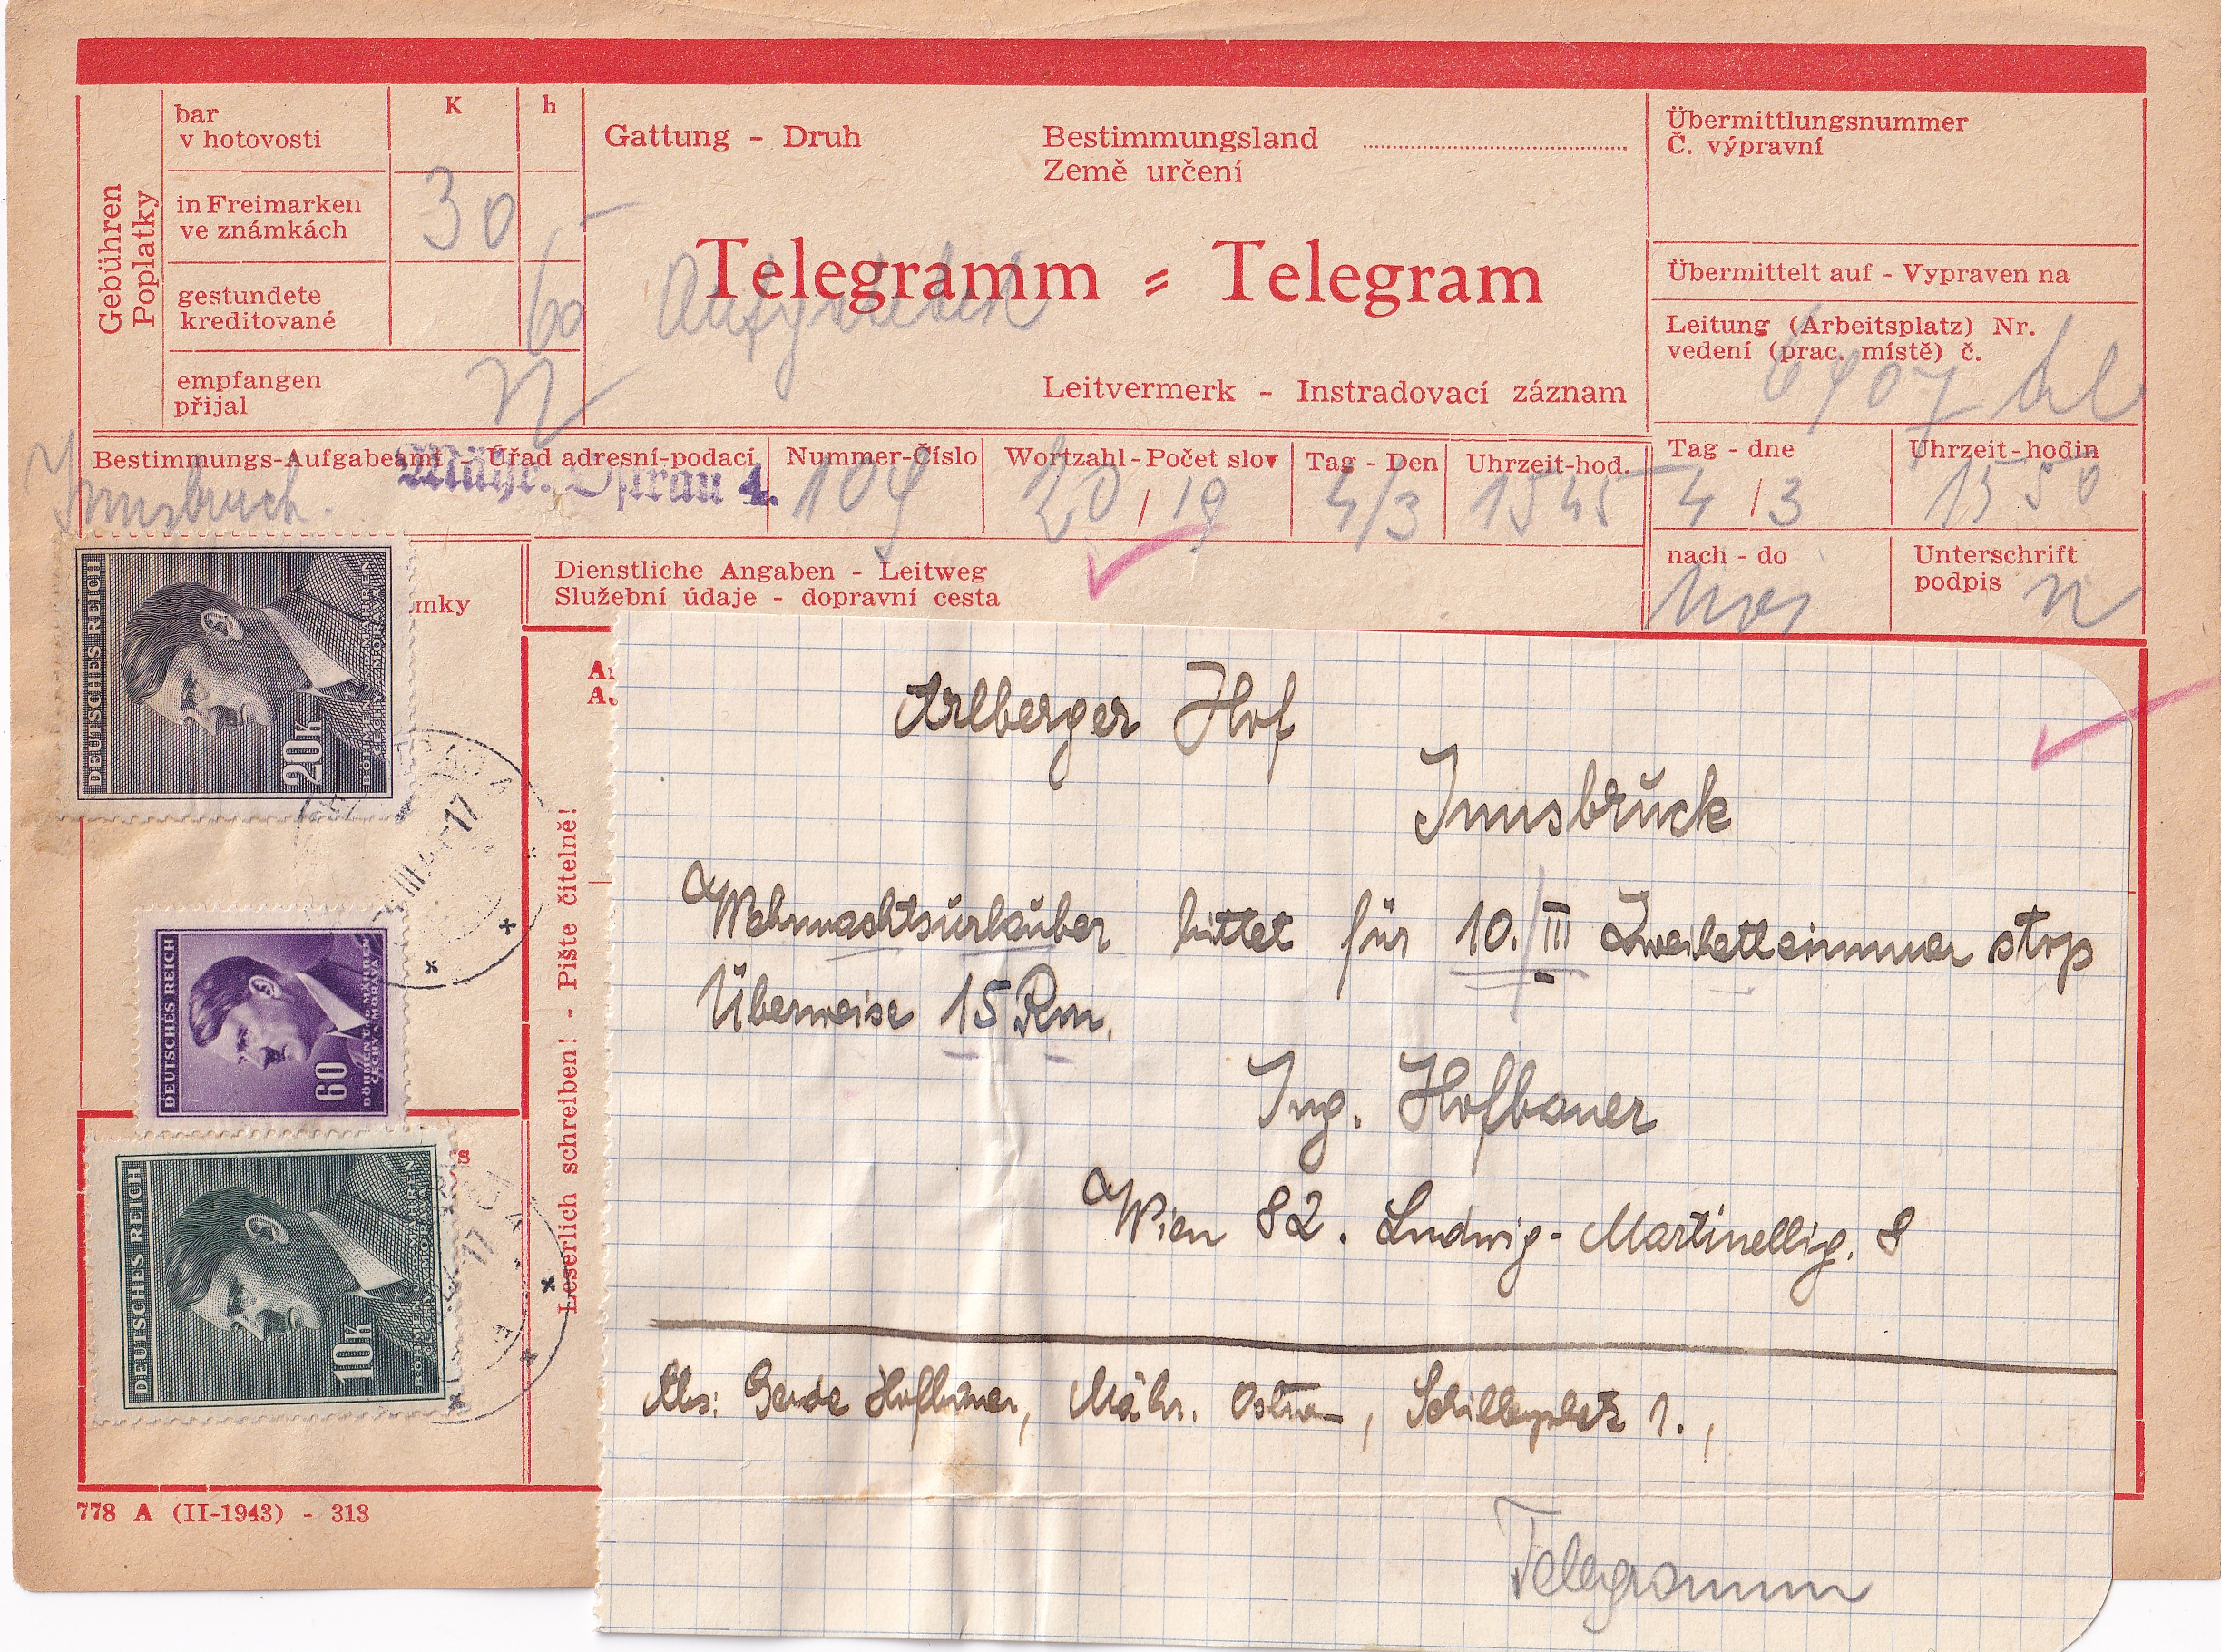 Gebühren
Poplatky
bar
v hotovosti
K
h
in Freimarken
ve známkách
30
gestundete
kreditované
60
empfangen
přijal
Gattung - Druh
Bestimmungsland
Země určení
Telegramm = Telegram
Leitvermerk - Instradovací záznam
Übermittlungsnummer
Č. výpravní
Übermittelt auf - Vypraven na
Leitung (Arbeitsplatz) Nr.
vedení (prac. místě) č.
Bestimmungs-Aufgabeamt - Úřad adresní-podací
Innsbruck.
Mähr. Ostrau 4.
Nummer-Číslo
Wortzahl - Počet slov
20 / 19
Tag - Den
4/3
Uhrzeit-hod.
1545
Tag - dne
4 / 3
Uhrzeit-hodin
1550
nach - do
Unterschrift
podpis
Dienstliche Angaben - Leitweg
Služební údaje - dopravní cesta
mky
DEUTSCHES REICH
20K
BÖHMEN U. MÄHREN
ČECHY A MORAVA
17
DEUTSCHES REICH
60
BÖHMEN U. MÄHREN
ČECHY A MORAVA
DEUTSCHES REICH
10K
BÖHMEN U. MÄHREN
ČECHY A MORAVA
17
Leserlich schreiben! - Pište čitelně!
Arlberger Hof
Innsbruck
Wehrmachtsurlauber bittet für 10./III Zweibettzimmer stop
Überweise 15 Rm.
Ing. Hofbauer
Wien 82. Ludwig-Martinellig. 8
Abs: Gerda Hofbauer, Mähr. Ostrau, Schillerplatz 1.,
Telegramm
778 A (II-1943) - 313